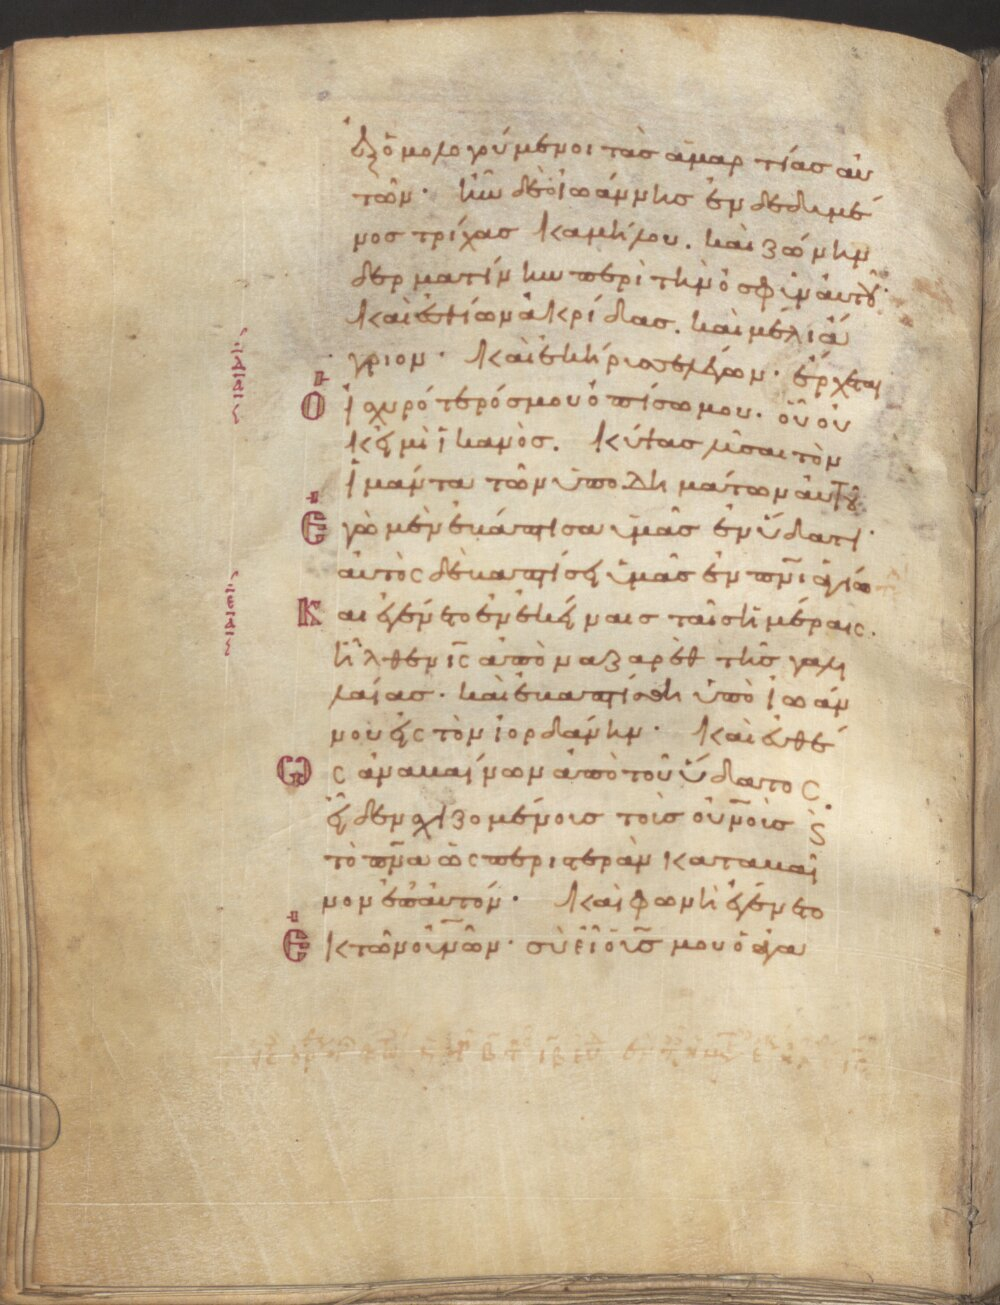 ἐξομολογούμενοι τὰσ ἁμαρτίασ αὐ
τῶν· ἦν δὲ ὁ ἰωάννησ ἐνδεδυμέ
νοσ τρίχασ καμήλου. καὶ ζώνην
δερματίνην περὶ τὴν ὀσφὺν αὐτοῦ·
καὶ ἐσθίων ἀκρίδασ. καὶ μέλι ἄ
γριον· καὶ ἐκήρυσσε λέγων· ἔρχεται
Ὁ ἰσχυρότερόσ μου ὀπίσω μου· οὗ οὐ
κ εἰμὶ ἱκανὸσ. κύψασ λῦσαι τὸν
ἱμάντα τῶν ὑποδημάτων αὐτοῦ.
Ἐγὼ μὲν ἐβάπτισα ὑμᾶσ ἐν ὕδατι·
αὐτὸς δὲ βαπτίσει ὑμᾶσ ἐν πν̅ι ἁγίω
Και ἐγένετο ἐν ἐκείναισ ταῖσ ἡμέραις.
ἦλθεν ι̅ς ἀπὸ ναζαρὲθ τῆσ γαλι
λαίασ· καὶ ἐβαπτίσθη ὑπὸ ἰωάν
νου εἰς τὸν ἰορδάνην· καὶ εὐθέ
Ως ἀναβαίνων ἀπὸ τοῦ ὕδατος.
εἶδεν σχιζομένουσ τοὺσ οὐν̅οὺσ ϛ
τὸ πν̅α ὡς περιστερὰν καταβαῖ
νον ἐπ' αὐτόν· καὶ φωνὴ ἐγένετο
Ἐκ τῶν οὐν̅ῶν· σὺ εἶ ὁ υ̅σ μου ὁ ἀγα